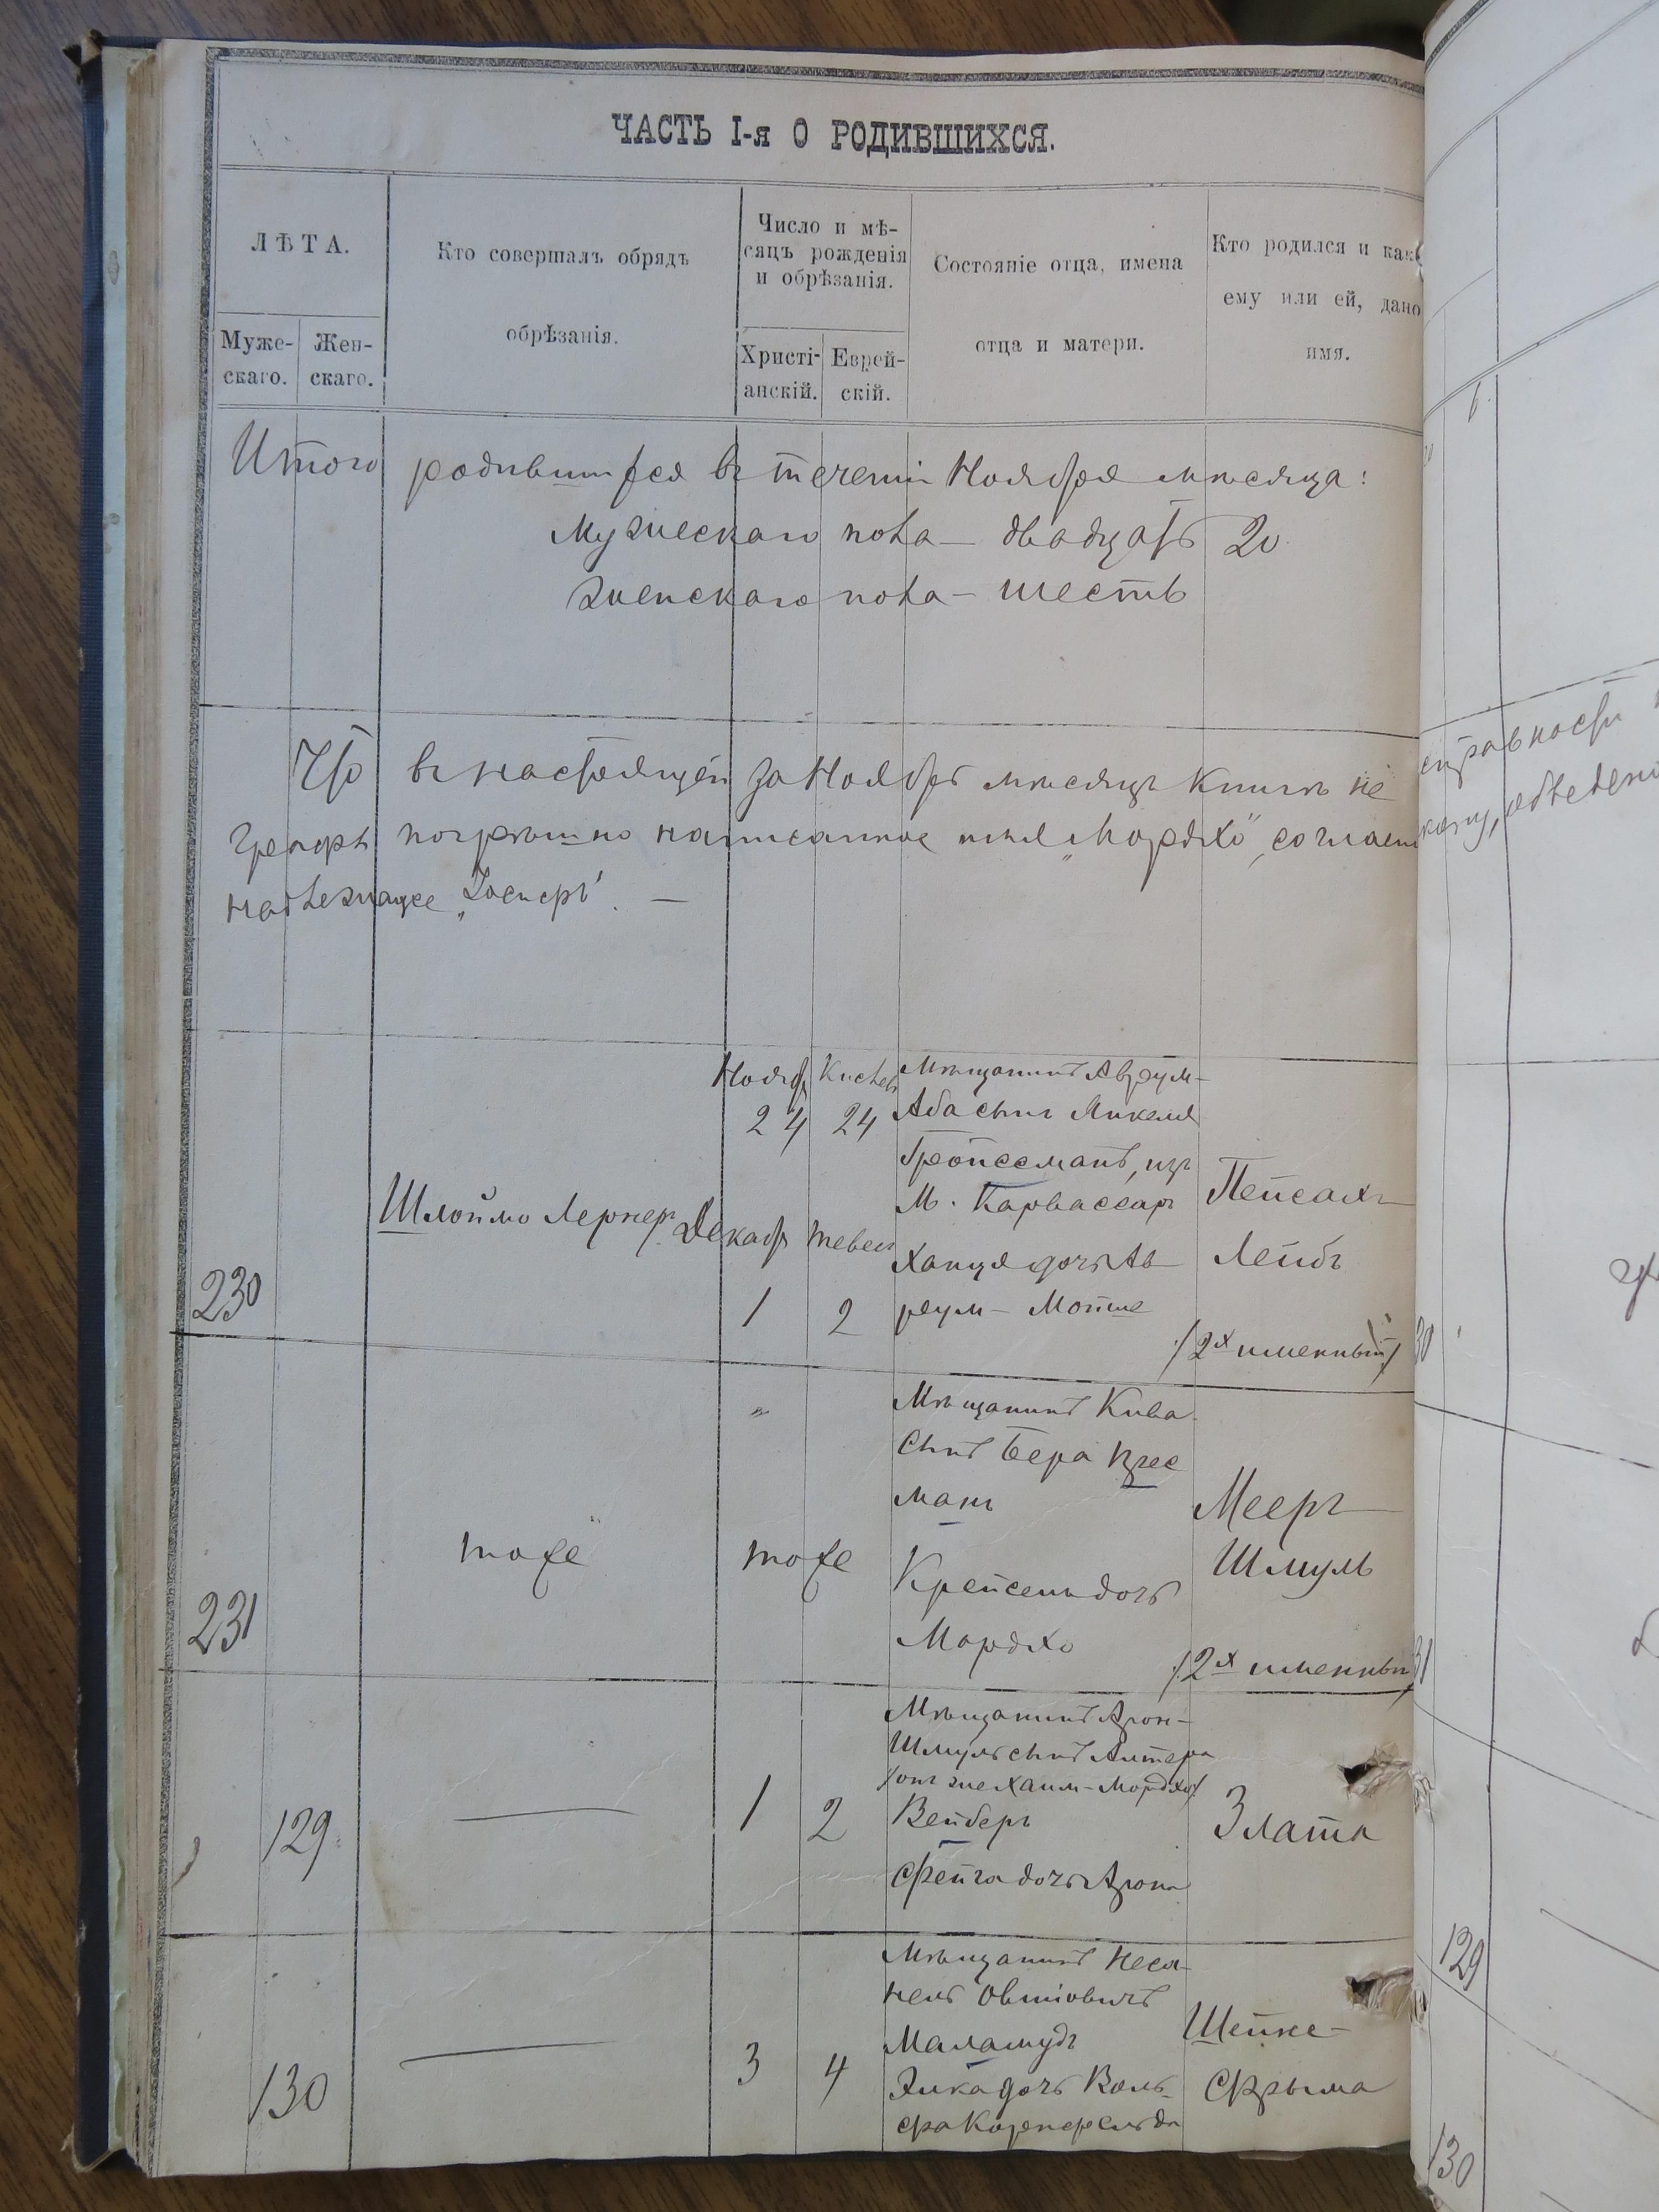 ЧАСТЬ I-я О РОДИВШИХСЯ.
ЛѢТА.
Муже-
скаго.
Жен-
скаго.
Кто совершалъ обрядъ
обрѣзанія.
Число и мѣ-
сяцъ рожденія
и обрѣзанія.
Христі-
анскій.
Еврей-
скій.
Состояніе отца, имена
отца и матери.
Кто родился и како
ему или ей, дано
имя.
Итого родившихся въ теченіи Ноября мѣсяца:
Мужескаго пола — двадцать 20
женскаго пола — шесть
Что въ настоящей за Ноябрь мѣсяцъ книгѣ не
погрѣшно написанное имя „Мордхо", соглас
надлежащее
230
Шлоймо Лернер
Нояб
24
Декаб
1
Кислев
24
Тевес
2
Мѣщанинъ Аврум-
Аба сынъ Микеля
Гройссманъ, изъ
М. Карвассаръ
Ханця дочь Ав-
рум-Мойше
Пейсахъ
Лейбъ
/2х именный/
231
тоже
"
тоже
Мѣщанинъ Кива
сынъ Бера
манъ
Крейсель дочь
Мордхо
Мееръ
Шмуль
/2х именный/
129
—
1
2
Мѣщанинъ Арон-
Шмуль сынъ Алтера
/онъ же Хаим-Мордхо/
Вейберъ
Фейга дочь Арона
Злата
130
—
3
4
Мѣщанинъ
Овшіовичъ
Маламудъ
Элка дочь Воль-
фа Корнфельда
Шейне-
Фрыма
31
129
130